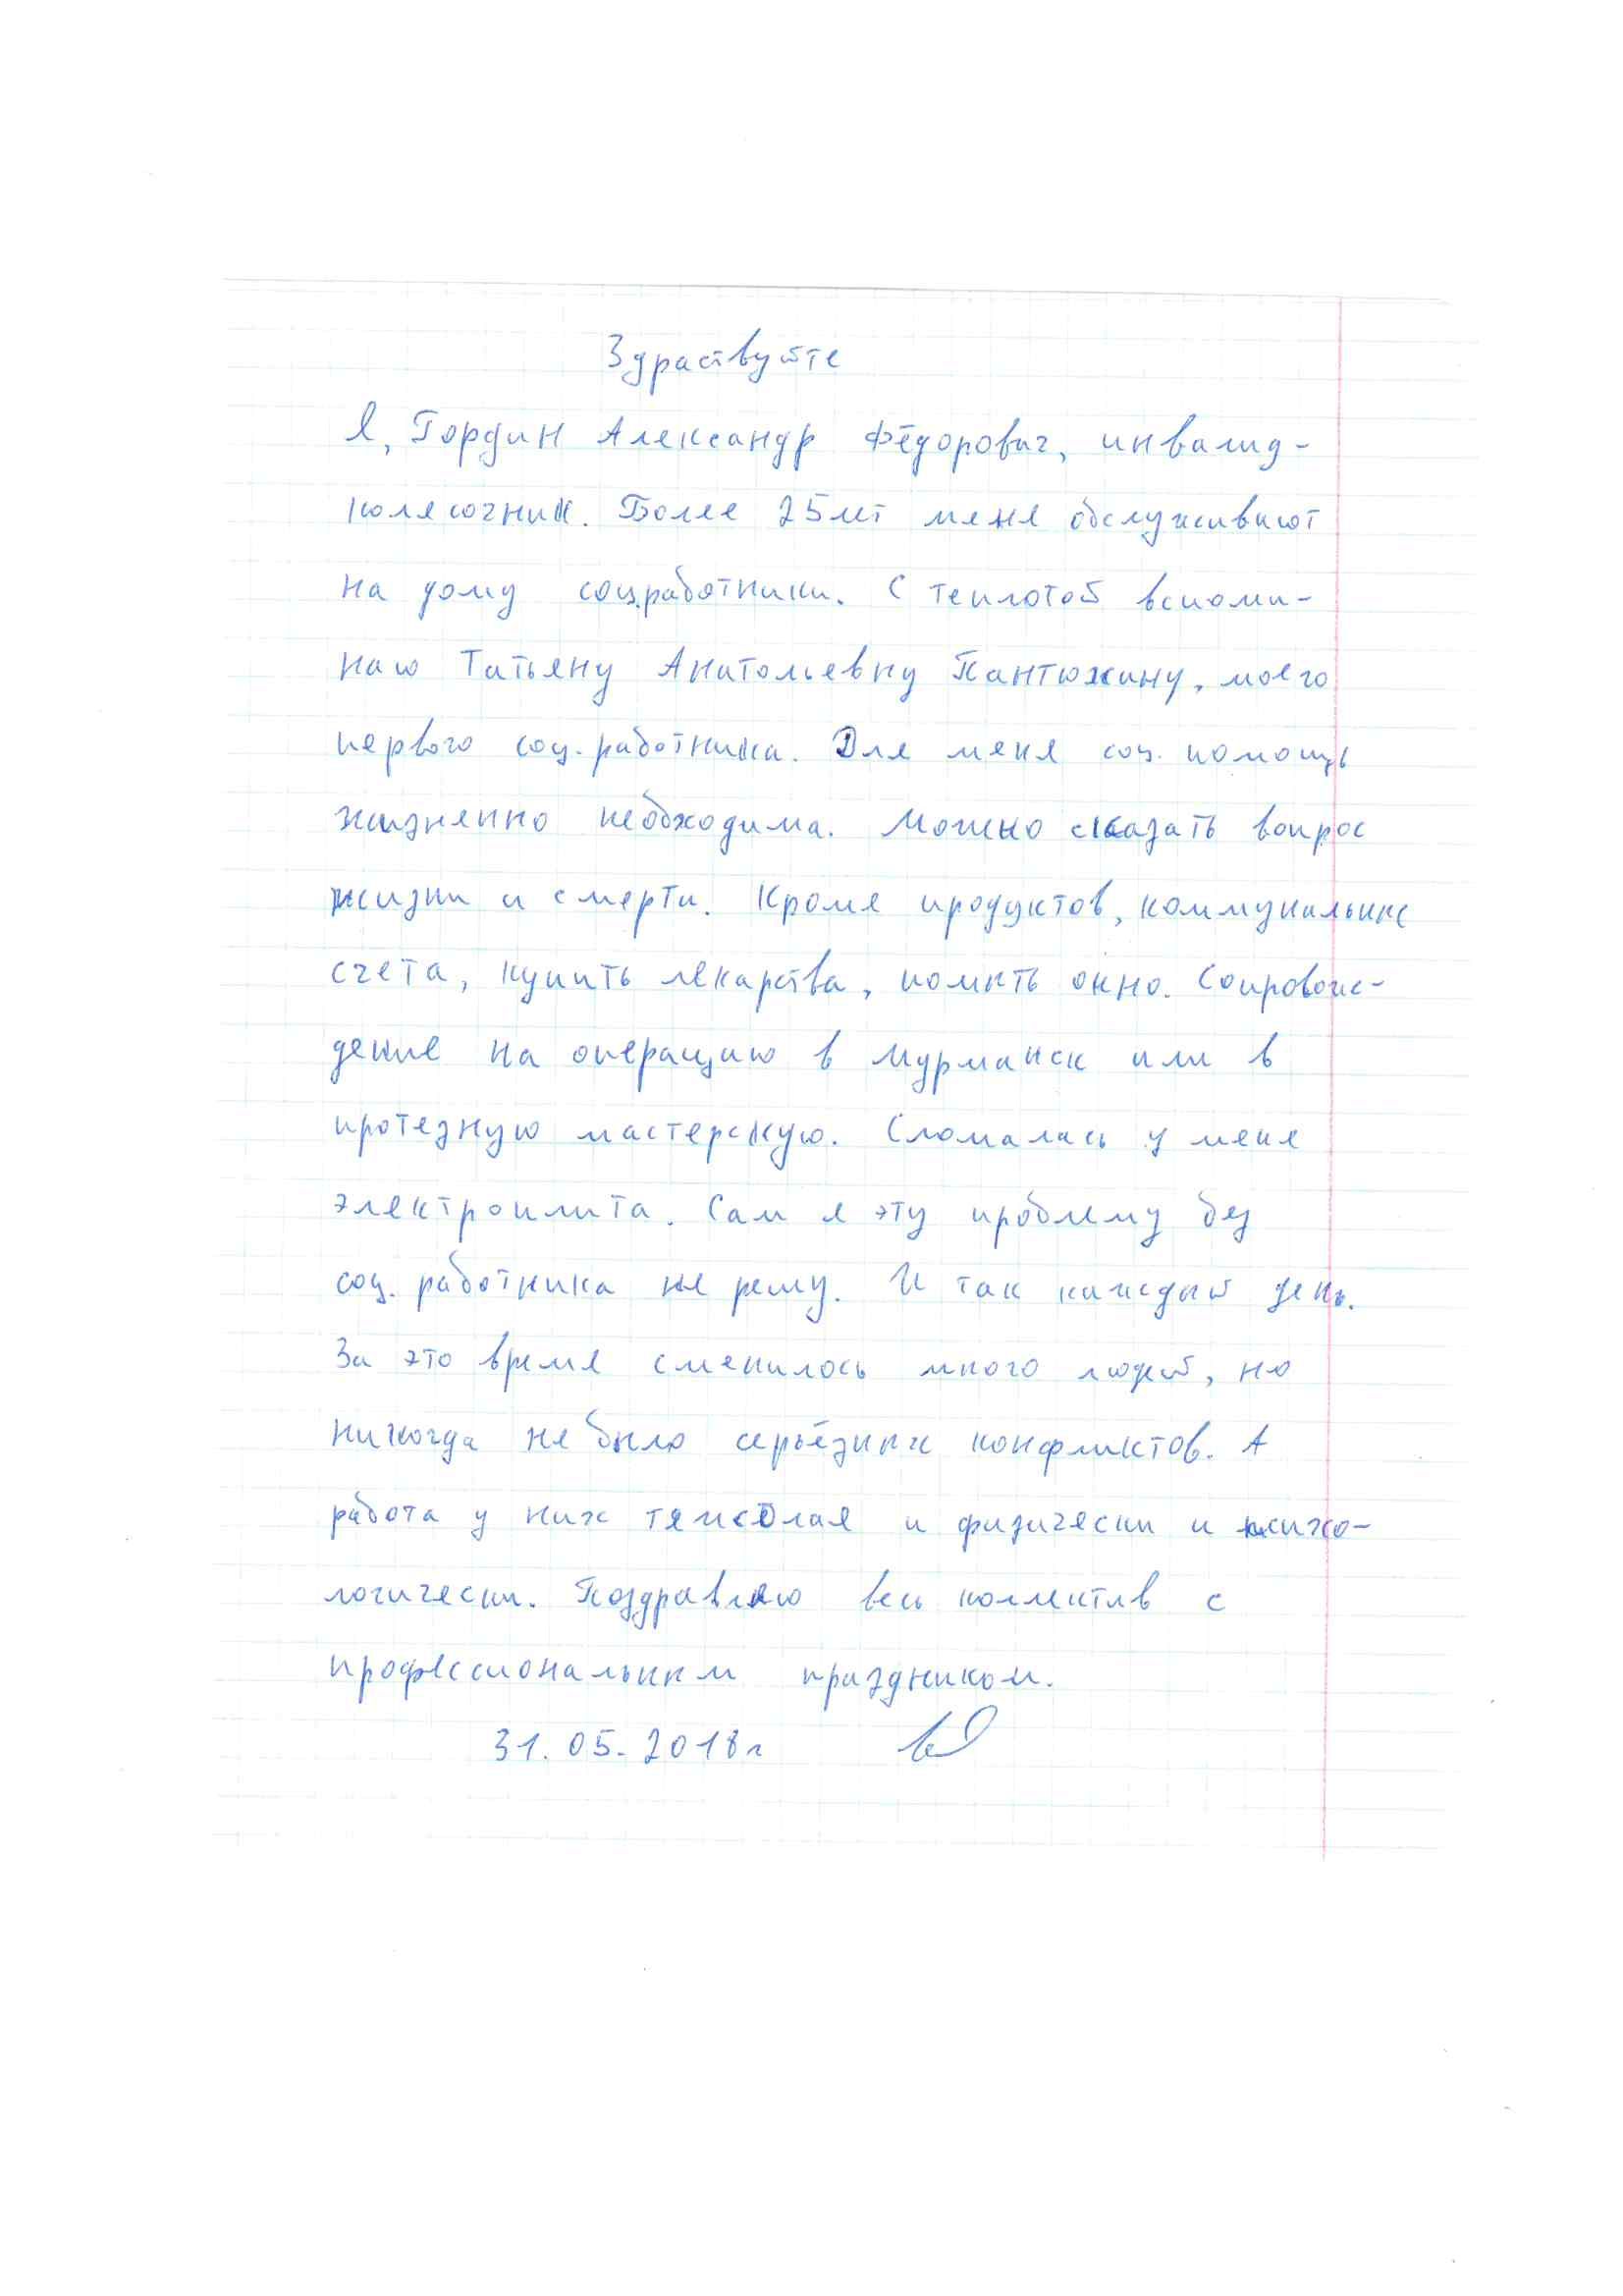 Здраствуйте
Я, Гордин Александр Фёдорович, инвалид-
колясочник. Более 25 лет меня обслуживают
на дому соц.работники. С теплотой вспоми-
наю Татьяну Анатольевну Пантюхину, моего
первого соц. работника. Для меня соц. помощь
жизненно необходима. Можно сказать вопрос
жизни и смерти. Кроме продуктов, коммунальные
счета, купить лекарства, помыть окно. Сопровож-
дение на операцию в Мурманск или в
протезную мастерскую. Сломалась у меня
электроплита. Сам я эту проблему без
соц. работника не решу. И так каждый день.
За это время сменилось много людей, но
никогда не было серьёзных конфликтов. А
работа у них тяжёлая и физически и психо-
логически. Поздравляю весь коллектив с
профессиональным праздником.
31.05.2018г